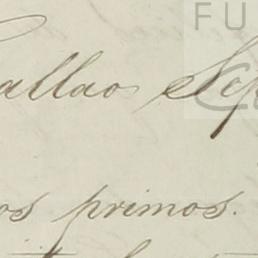 FU
allao Sep
os primos.